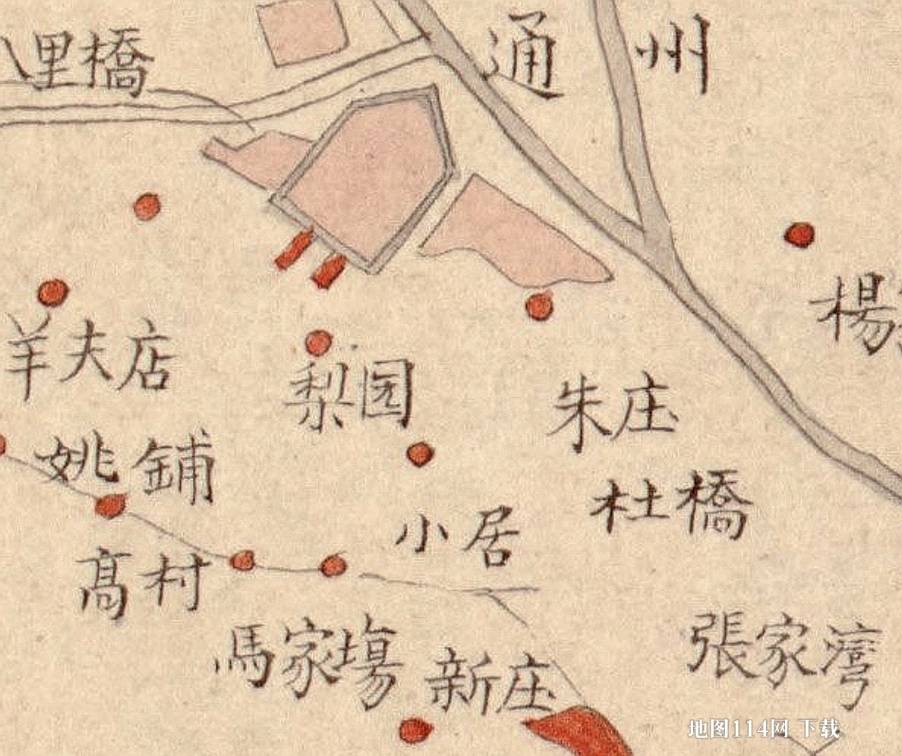 八里橋
通州
羊夫店
梨园
朱庄
姚鋪
杜橋
小居
髙村
馬家塲
新庄
張家灣
楊
地图114网 下载